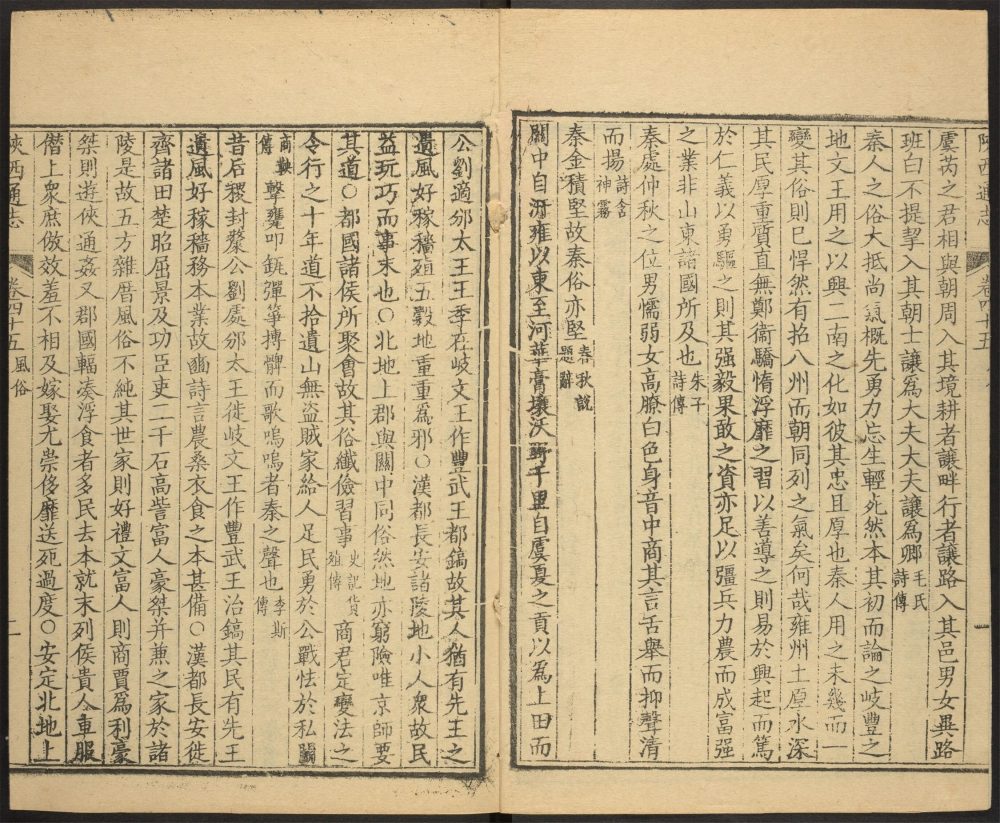 陝西通志 卷四十五 一
虞芮之君相與朝周入其境耕者讓畔行者讓路入其邑男女異路
班白不提挈入其朝士讓爲大夫大夫讓爲卿毛氏詩傳
秦人之俗大抵尚氣概先勇力忘生輕死然本其初而論之岐豐之
地文王用之以興二南之化如彼其忠且厚也秦人用之未幾而一
變其俗則已悍然有招八州而朝同列之氣矣何哉雍州土厚水深
其民厚重質直無鄭衞驕惰浮靡之習以善導之則易於興起而篤
於仁義以勇驅之則其强毅果敢之資亦足以彊兵力農而成富强
之業非山東諸國所及也朱子詩傳
秦處仲秋之位男懦弱女高膫白色身音中商其言舌舉而抑聲清
而揚詩含神霧
秦金積堅故秦俗亦堅春秋說題辭
關中自汧雍以東至河華膏壤沃野千里自虞夏之貢以爲上田而
公劉適邠太王王季在岐文王作豐武王都鎬故其人猶有先王之
遺風好稼穡殖五穀地重重爲邪○漢都長安諸陵地小人衆故民
益玩巧而事末也○北地上郡與關中同俗然地亦窮險唯京師要
其道○都國諸侯所聚會故其俗纖儉習事史記貨殖傳 商君定變法之
令行之十年道不拾遺山無盜賊家給人足民勇於公戰怯於私鬬
商鞅傳 擊甕叩缻彈箏搏髀而歌嗚嗚者秦之聲也李斯傳
昔后稷封斄公劉處邠太王徙岐文王作豐武王治鎬其民有先王
遺風好稼穡務本業故豳詩言農桑衣食之本甚備○漢都長安徙
齊諸田楚昭屈景及功臣吏二千石高訾富人豪桀并兼之家於諸
陵是故五方雜厝風俗不純其世家則好禮文富人則商賈爲利豪
桀則遊俠通姦又郡國輻湊浮食者多民去本就末列侯貴人車服
僭上衆庶倣效羞不相及嫁娶尤崇侈靡送死過度○安定北地上
陝西通志 卷四十五 風俗 一